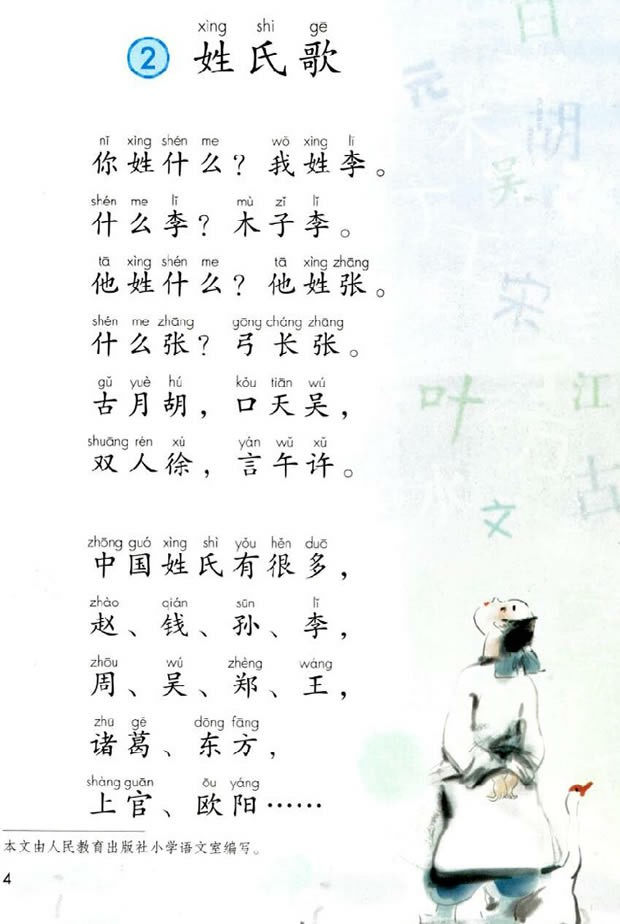 xìng shì gē
2 姓氏歌
nǐ xìng shén me wǒ xìng lǐ
你姓什么？我姓李。
shén me lǐ mù zǐ lǐ
什么李？木子李。
tā xìng shén me tā xìng zhāng
他姓什么？他姓张。
shén me zhāng gōng cháng zhāng
什么张？弓长张。
gǔ yuè hú kǒu tiān wú
古月胡，口天吴，
shuāng rén xú yán wǔ xǔ
双人徐，言午许。
zhōng guó xìng shì yǒu hěn duō
中国姓氏有很多，
zhào qián sūn lǐ
赵、钱、孙、李，
zhōu wú zhèng wáng
周、吴、郑、王，
zhū gě dōng fāng
诸葛、东方，
shàng guān ōu yáng
上官、欧阳……
本文由人民教育出版社小学语文室编写。
4
元
胡
吴
宋
叶
江
古
文